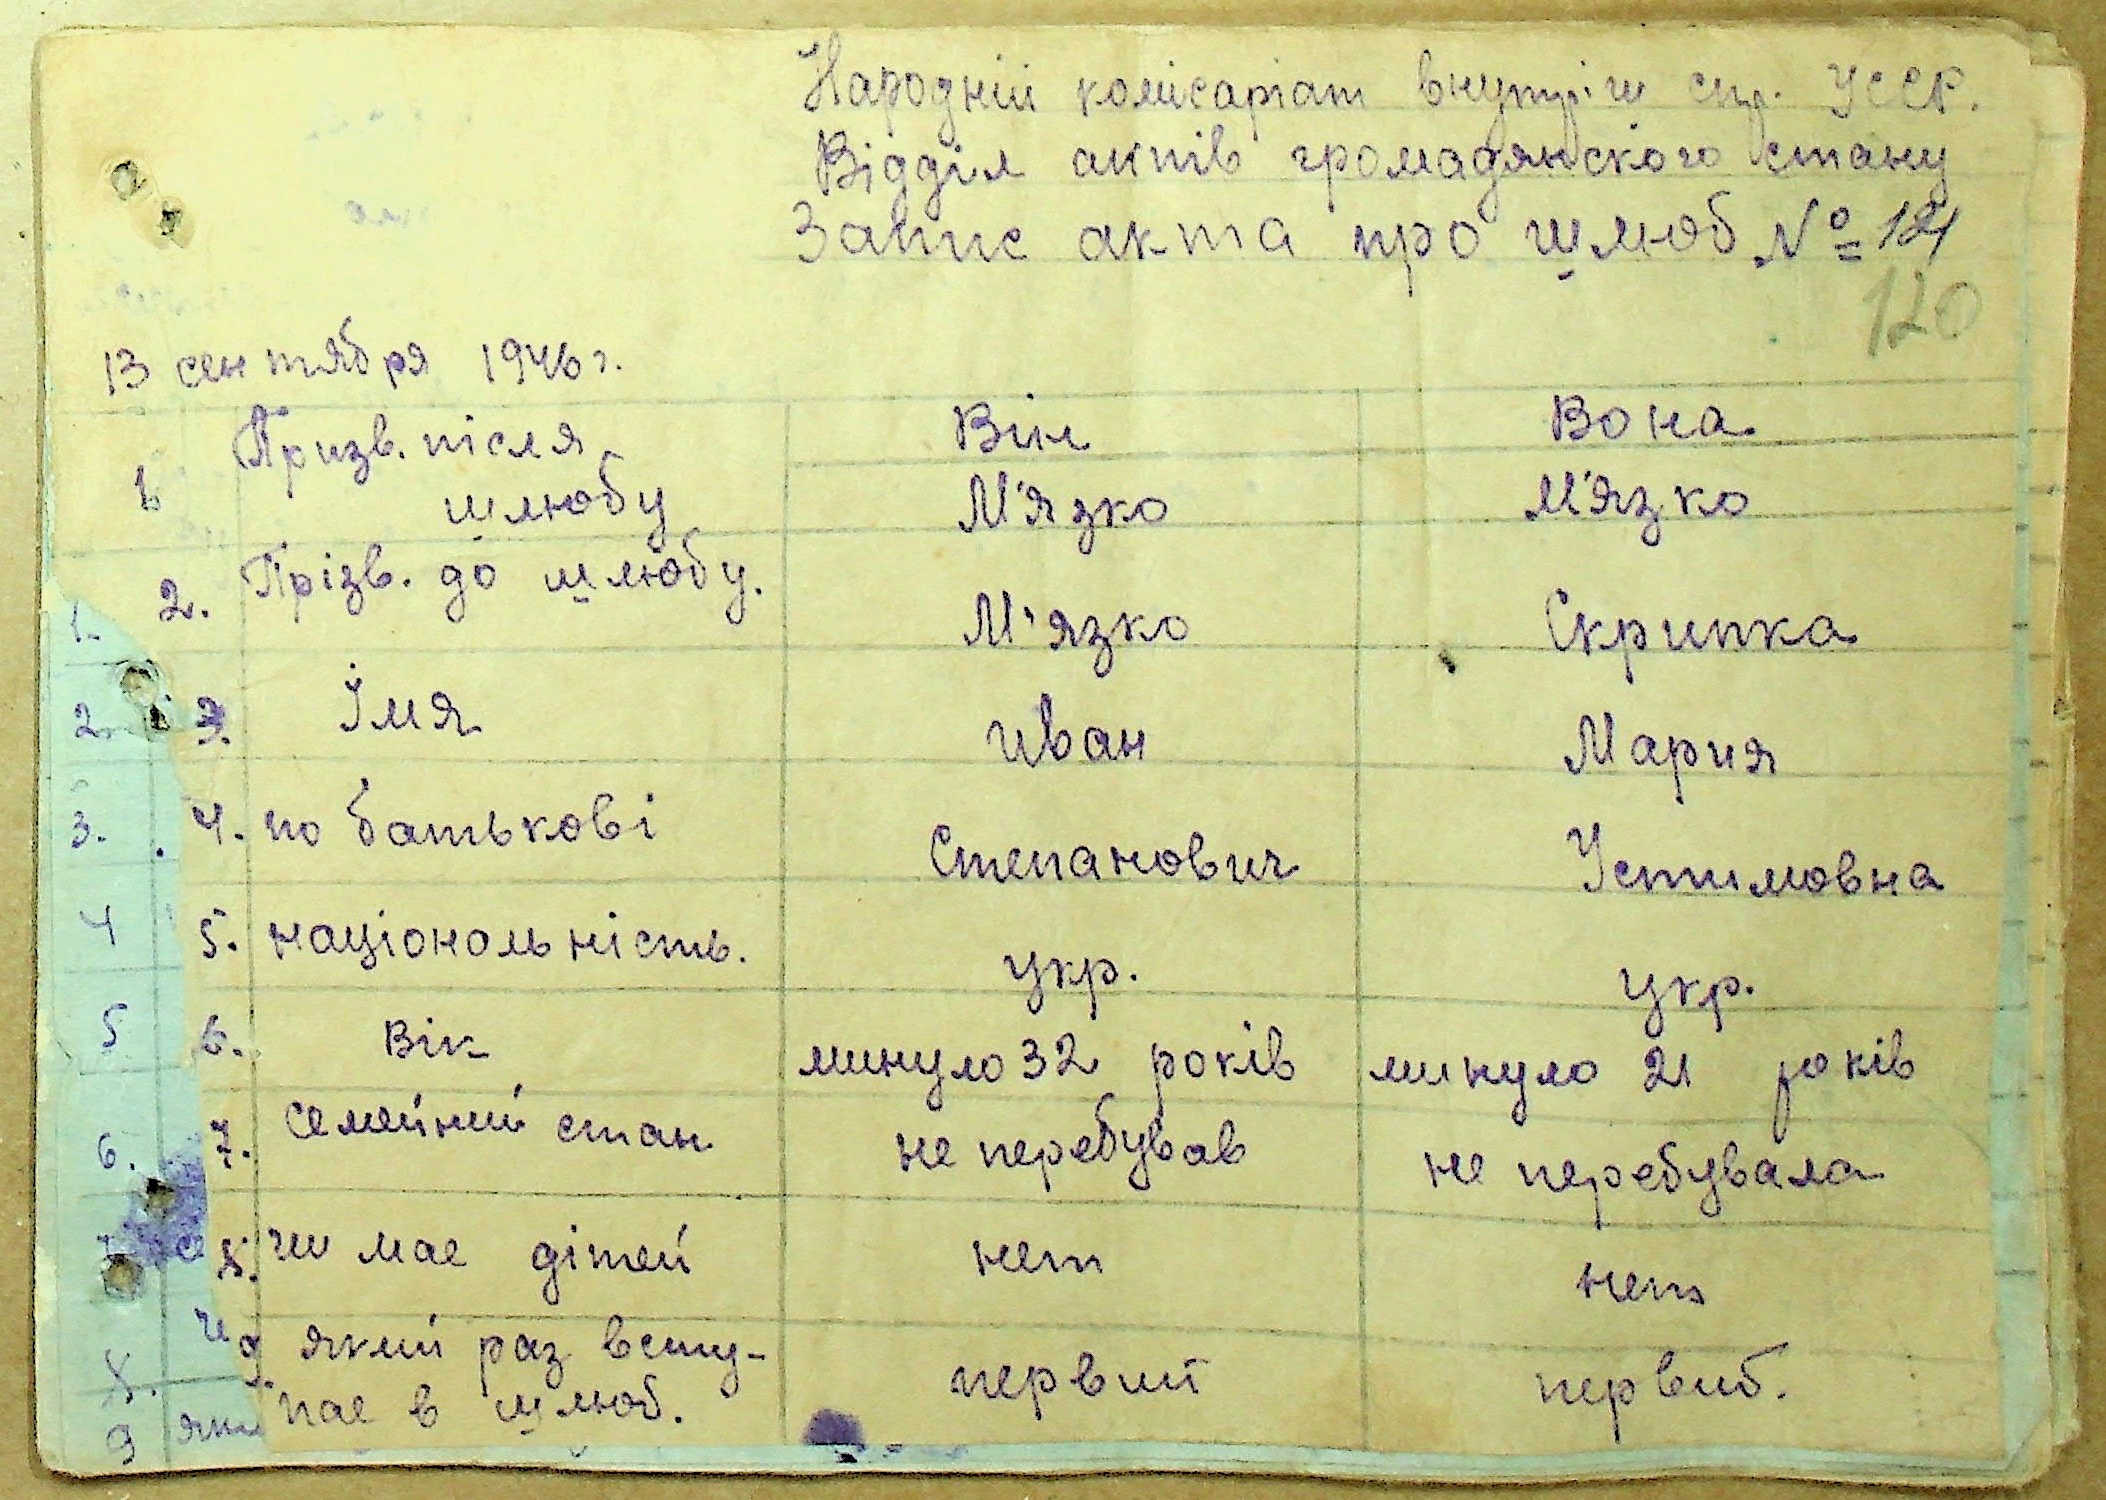 Народній комісаріат внутріш спр. УССР.
Відділ актів громадянского стану
Запис акта про шлюб №
120
13 сентября 1946 г.
Він Вона
1 Призв. після
шлюбу М'язко М'язко
2. Прізв. до шлюбу. М'язко Скрипка
3. Їмя Иван Мария
4. по батькові Степанович Устимовна
5. національність. укр. укр.
6. Вік минуло 32 років минуло 21 років
7. Семейний стан не перебував не перебувала
8. чи мае дітей нет нет
9. який раз всту-
пае в шлюб. первий первиб.
1.
2
3.
4
5
6.
8.
9 яки